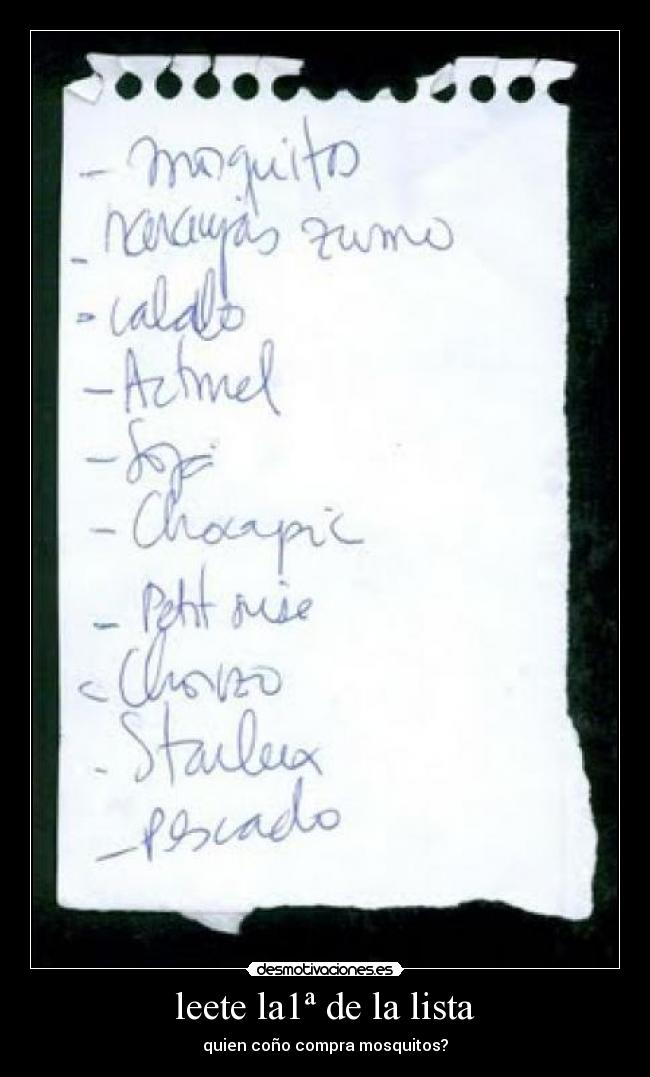 - mosquitos
- naranjas zumo
- caldo
- Actimel
- Soja
- Chocapic
- Petit suise
- Chorizo
- Starlux
- pescado
desmotivaciones.es
leete la1ª de la lista
quien coño compra mosquitos?